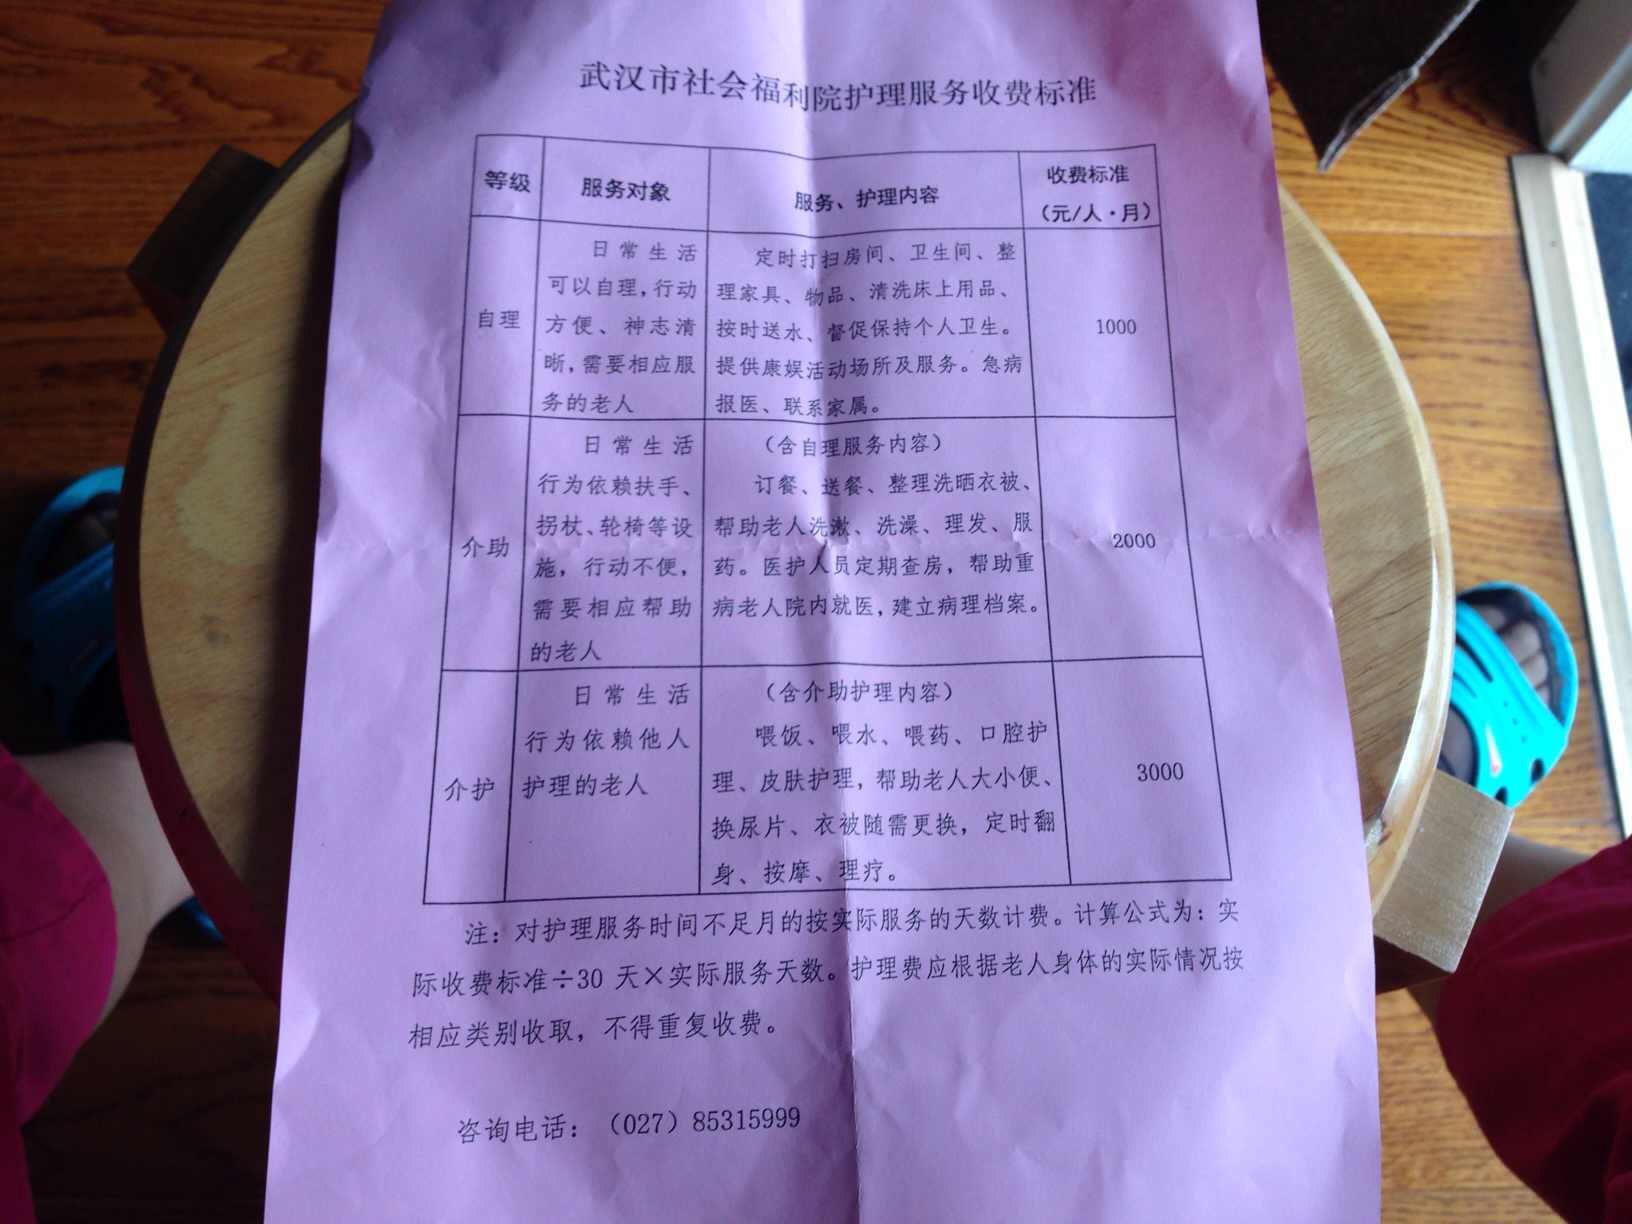 武汉市社会福利院护理服务收费标准
等级 服务对象 服务、护理内容 收费标准
（元/人·月）
自理
日常生活
可以自理，行动
方便、神志清
晰，需要相应服
务的老人
定时打扫房间、卫生间、整
理家具、物品、清洗床上用品、
按时送水、督促保持个人卫生。
提供康娱活动场所及服务。急病
报医、联系家属。
1000
介助
日常生活
行为依赖扶手、
拐杖、轮椅等设
施，行动不便，
需要相应帮助
的老人
（含自理服务内容）
订餐、送餐、整理洗晒衣被、
帮助老人洗漱、洗澡、理发、服
药。医护人员定期查房，帮助重
病老人院内就医，建立病理档案。
2000
介护
日常生活
行为依赖他人
护理的老人
（含介助护理内容）
喂饭、喂水、喂药、口腔护
理、皮肤护理，帮助老人大小便、
换尿片、衣被随需更换，定时翻
身、按摩、理疗。
3000
注：对护理服务时间不足月的按实际服务的天数计费。计算公式为：实
际收费标准÷30 天×实际服务天数。护理费应根据老人身体的实际情况按
相应类别收取，不得重复收费。
咨询电话：（027）85315999